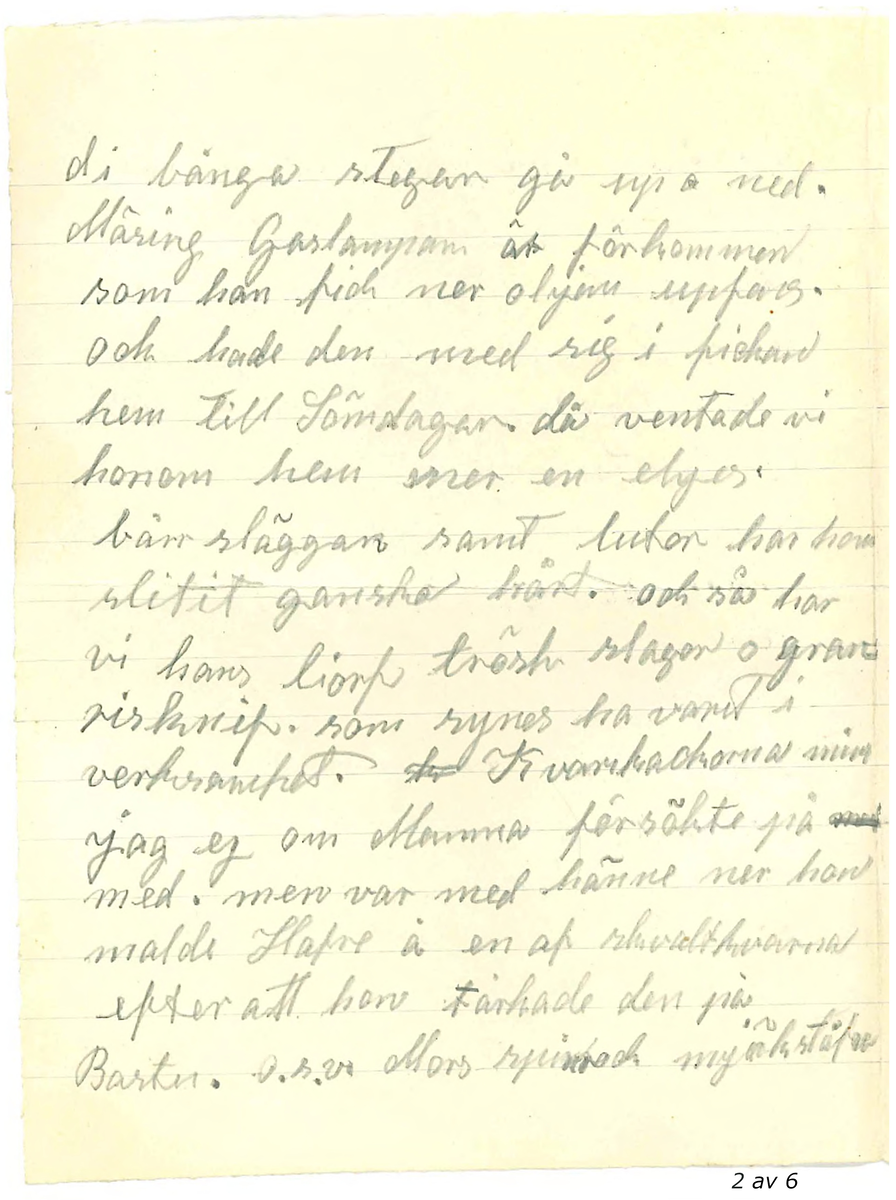 di långa stegar gå up o ned.
Märing Gaslampan är förkommen
som han fick ner oljan upfans.
och hade den med sig i fickan
hem till Söndagar. då ventade vi
honom hem mer en elyes.
bärr släggan samt lutor har han
slitit ganska hårt. och så har
vi hans liorf trösk slagor o gran
risknif. som synes ha varit i
verksamhet. Kvarnhackorna min
jag ej om Mamma försökte på
med. men var med hänne ner hon
malde Hafre å en af skvaltkvarna
efter att hon tårkade den på
Bastu. o.s.v. Mors spinrock mjölkstäfva
2 av 6